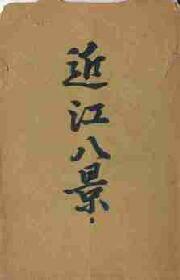 近江八景